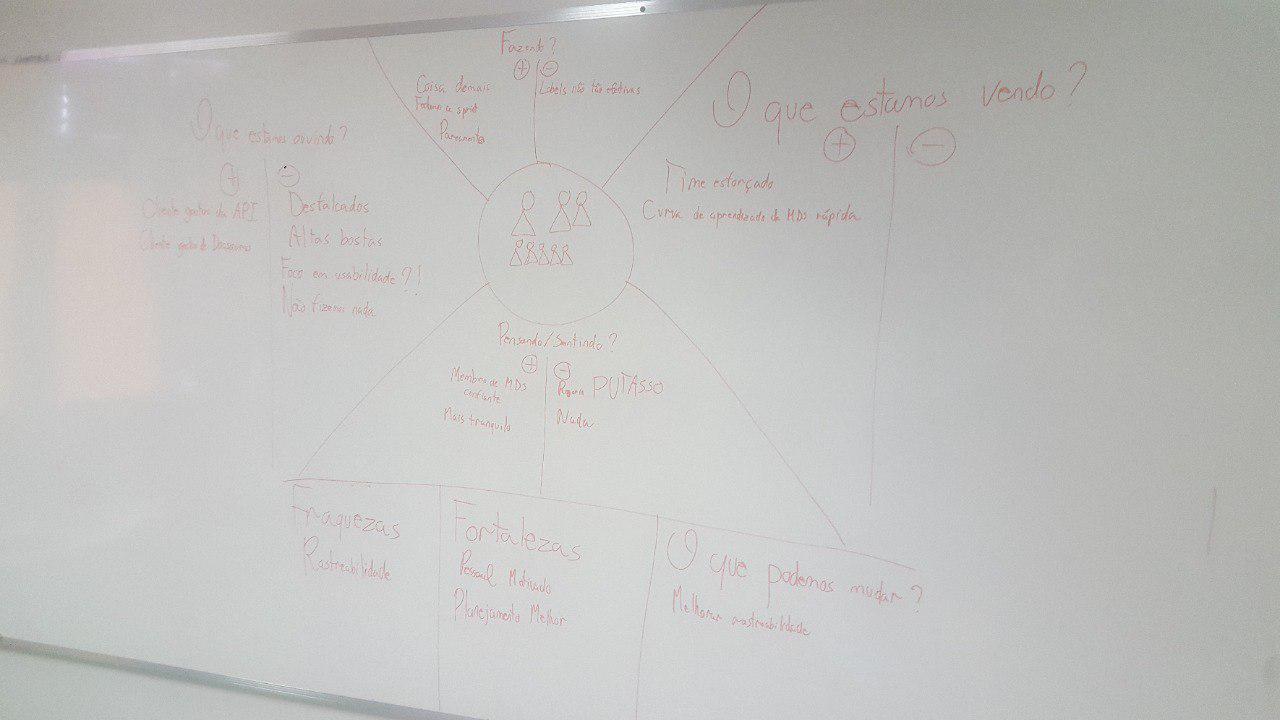 Fazendo?
+ -
Coisa demais
Labels não tão efetivas
Fechamos a sprint
O que estamos ouvindo?
+ -
Cliente gostou da API
Cliente gostou de
Desfalcados
Altas bostas
Foco em usabilidade?!
Não fizemos nada
O que estamos vendo?
+ -
Time esforçado
Curva de aprendizado de MDS rápida
Pensando/Sentindo?
+ -
Membro de MDS
confiante
Mais tranquilo
PUTASSO
Nada
Fraquezas
Rastreabilidade
Fortalezas
Pessoal Motivado
Planejamento Melhor
O que podemos mudar?
Melhorar rastreabilidade